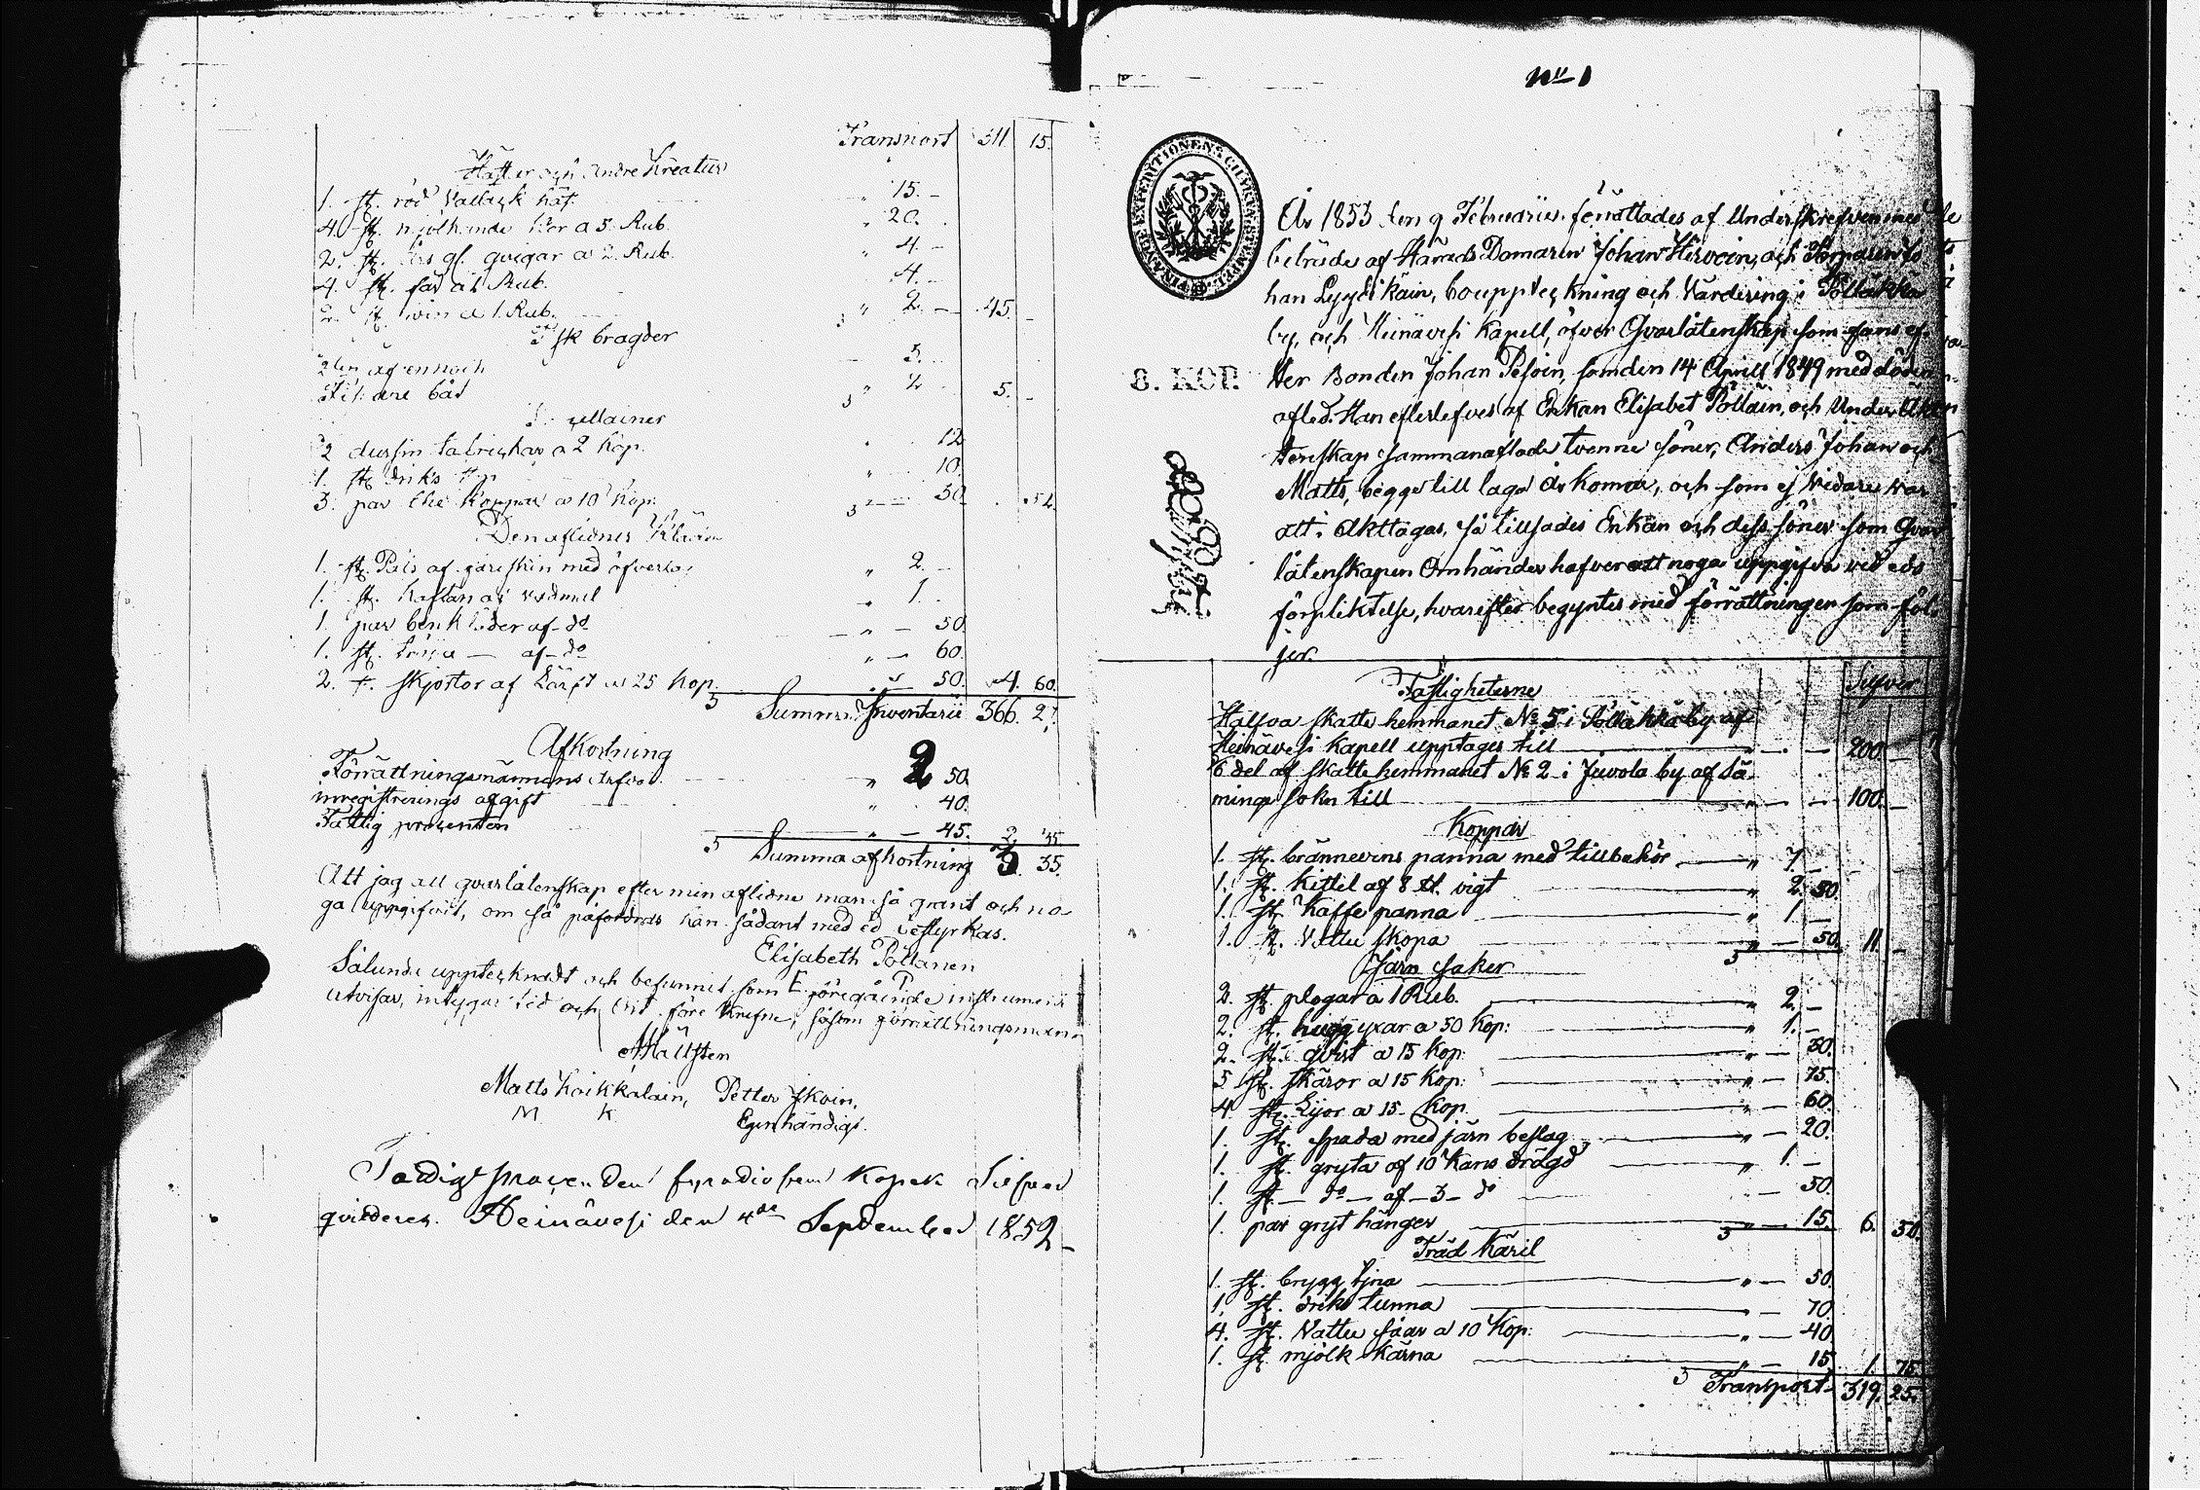 Transport 311 15.
Hästar och Andre Kreatur
1. st. röd Vallack häst 15. –
4. st. mjölkande kor a 5. Rub. " 20.
2. st. års gl. qvigar a 2. Rub. " 4. –
4. st. får a 1 Rub. 4. –
2. st. svin a 1. Rub. " 2. – 45. –
Fisk bragder
3.
båt " 2. 5. –
2 dussin talrickar a 2 Kop. 12
1. st. driks 10.
3. par the Koppar a 10 Kop: " – 30. . 52.
Den aflidnes Kläder
1. st. Päls af fåreskin med öfver " 2. –
1. st. Kaftan af vadmal " 1. .
1. par benkläder af – do " – 50.
1. st. tröja – af – do " – 60.
2. st. skjortor af Lärft a 25 Kop. " – 50. 4. 60.
Summa Inventarii 366. 27.
Afkortning
Förrättningsmännens Arfvod. " 2 50.
inregistrerings afgift " 40.
Fattig procenten " – 45. 2 45
Summa afkortning 3. 35.
Att jag all qvarlåtenskap efter min aflidne man så grant och no-
ga uppgifvit, om så påfordras kan sådant med ed bestyrkas.
Elisabeth Pöllänen
E. P
Sålunda uppteknadt och befunnit som föregående instrument
utvisar, intygar tid och Ort före skrefne, såsom förrättningsmän.
AHällsten
Matts Koikkalain, Petter Iskoin,
M K Egenhändigt.
Fattig procenden fyradio fem Kopek Silfver
qvitderes. Heinävesi den 4de September 1852 –
No 1
FINANCE EXPEDITIONENS CH. KARTÆSTÄMPEL.
8. KOP.
År 1853 den 9 Februarius förrättades af Underskrefven med
biträde af Härads Domaren Johan Hirvoin, och Torparen Jo
han Lyytikäin, bouppteckning och Värdering i Pöllakka
by, och Heinävesi Kapell, öfver Qvarlåtenskap som fans ef-
ter Bonden Johan Pesoin, som den 14 Aprill 1849 med döden
afled. Han efterlefves af Enkan Elisabet Pölläin, och Under Äk
tenskap sammanaflade tvenne söner, Anders Johan och
Matts, begge till laga år komne, och som ej vidare var
att i Akttagas, så tillsades Enkan och dess söner som Qvar
låtenskapen Omhänder hafver att noga uppgifva vid eds
förpliktelse, hvarefter begyntes med förrättningen som föl-
jer.
Fastigheterne Silfver
Halfva skatte hemmanet No 5 i Pöllakka by af
Heinävesi Kapell upptages till – " – – 200 –
1/6 del af skatte hemmanet No 2 i Juvola by af Sä-
minge sokn till – " – – 100. –
Koppar
1. st. brännevins panna med tillbehör – " 7. –
1. st. kittel af 8 ℔. vigt – " 2. 50.
1. st. Kaffe panna – " 1. –
1. st. Vattu skopa – " – 50. 11. –
Järn saker
2. st. plogar a 1 Rub. – " 2. –
2. st. huggyxar a 50 Kop: – " 1. –
2. st. qvist a 15 Kop: – " – 30.
5 st. skäror a 15 Kop: – " – 75.
4 st. Lijor a 15. Kop – " – 60.
1. st. spada med järn beslag – " – 20.
1. st. gryta af 10 Kans drägd – " 1. –
1. st. – do – af – 3 – do – – 50.
1. par gryt hänger – " – 15. 6. 50.
Träd Käril
1. st. brygg tjna – " – 50.
1. st. driks tunna – " – 70.
4. st. Vattu såar a 10 Kop: – " – 40.
1. st. mjölk kärna – " – 15. 1. 75.
Transport – 319. 25.